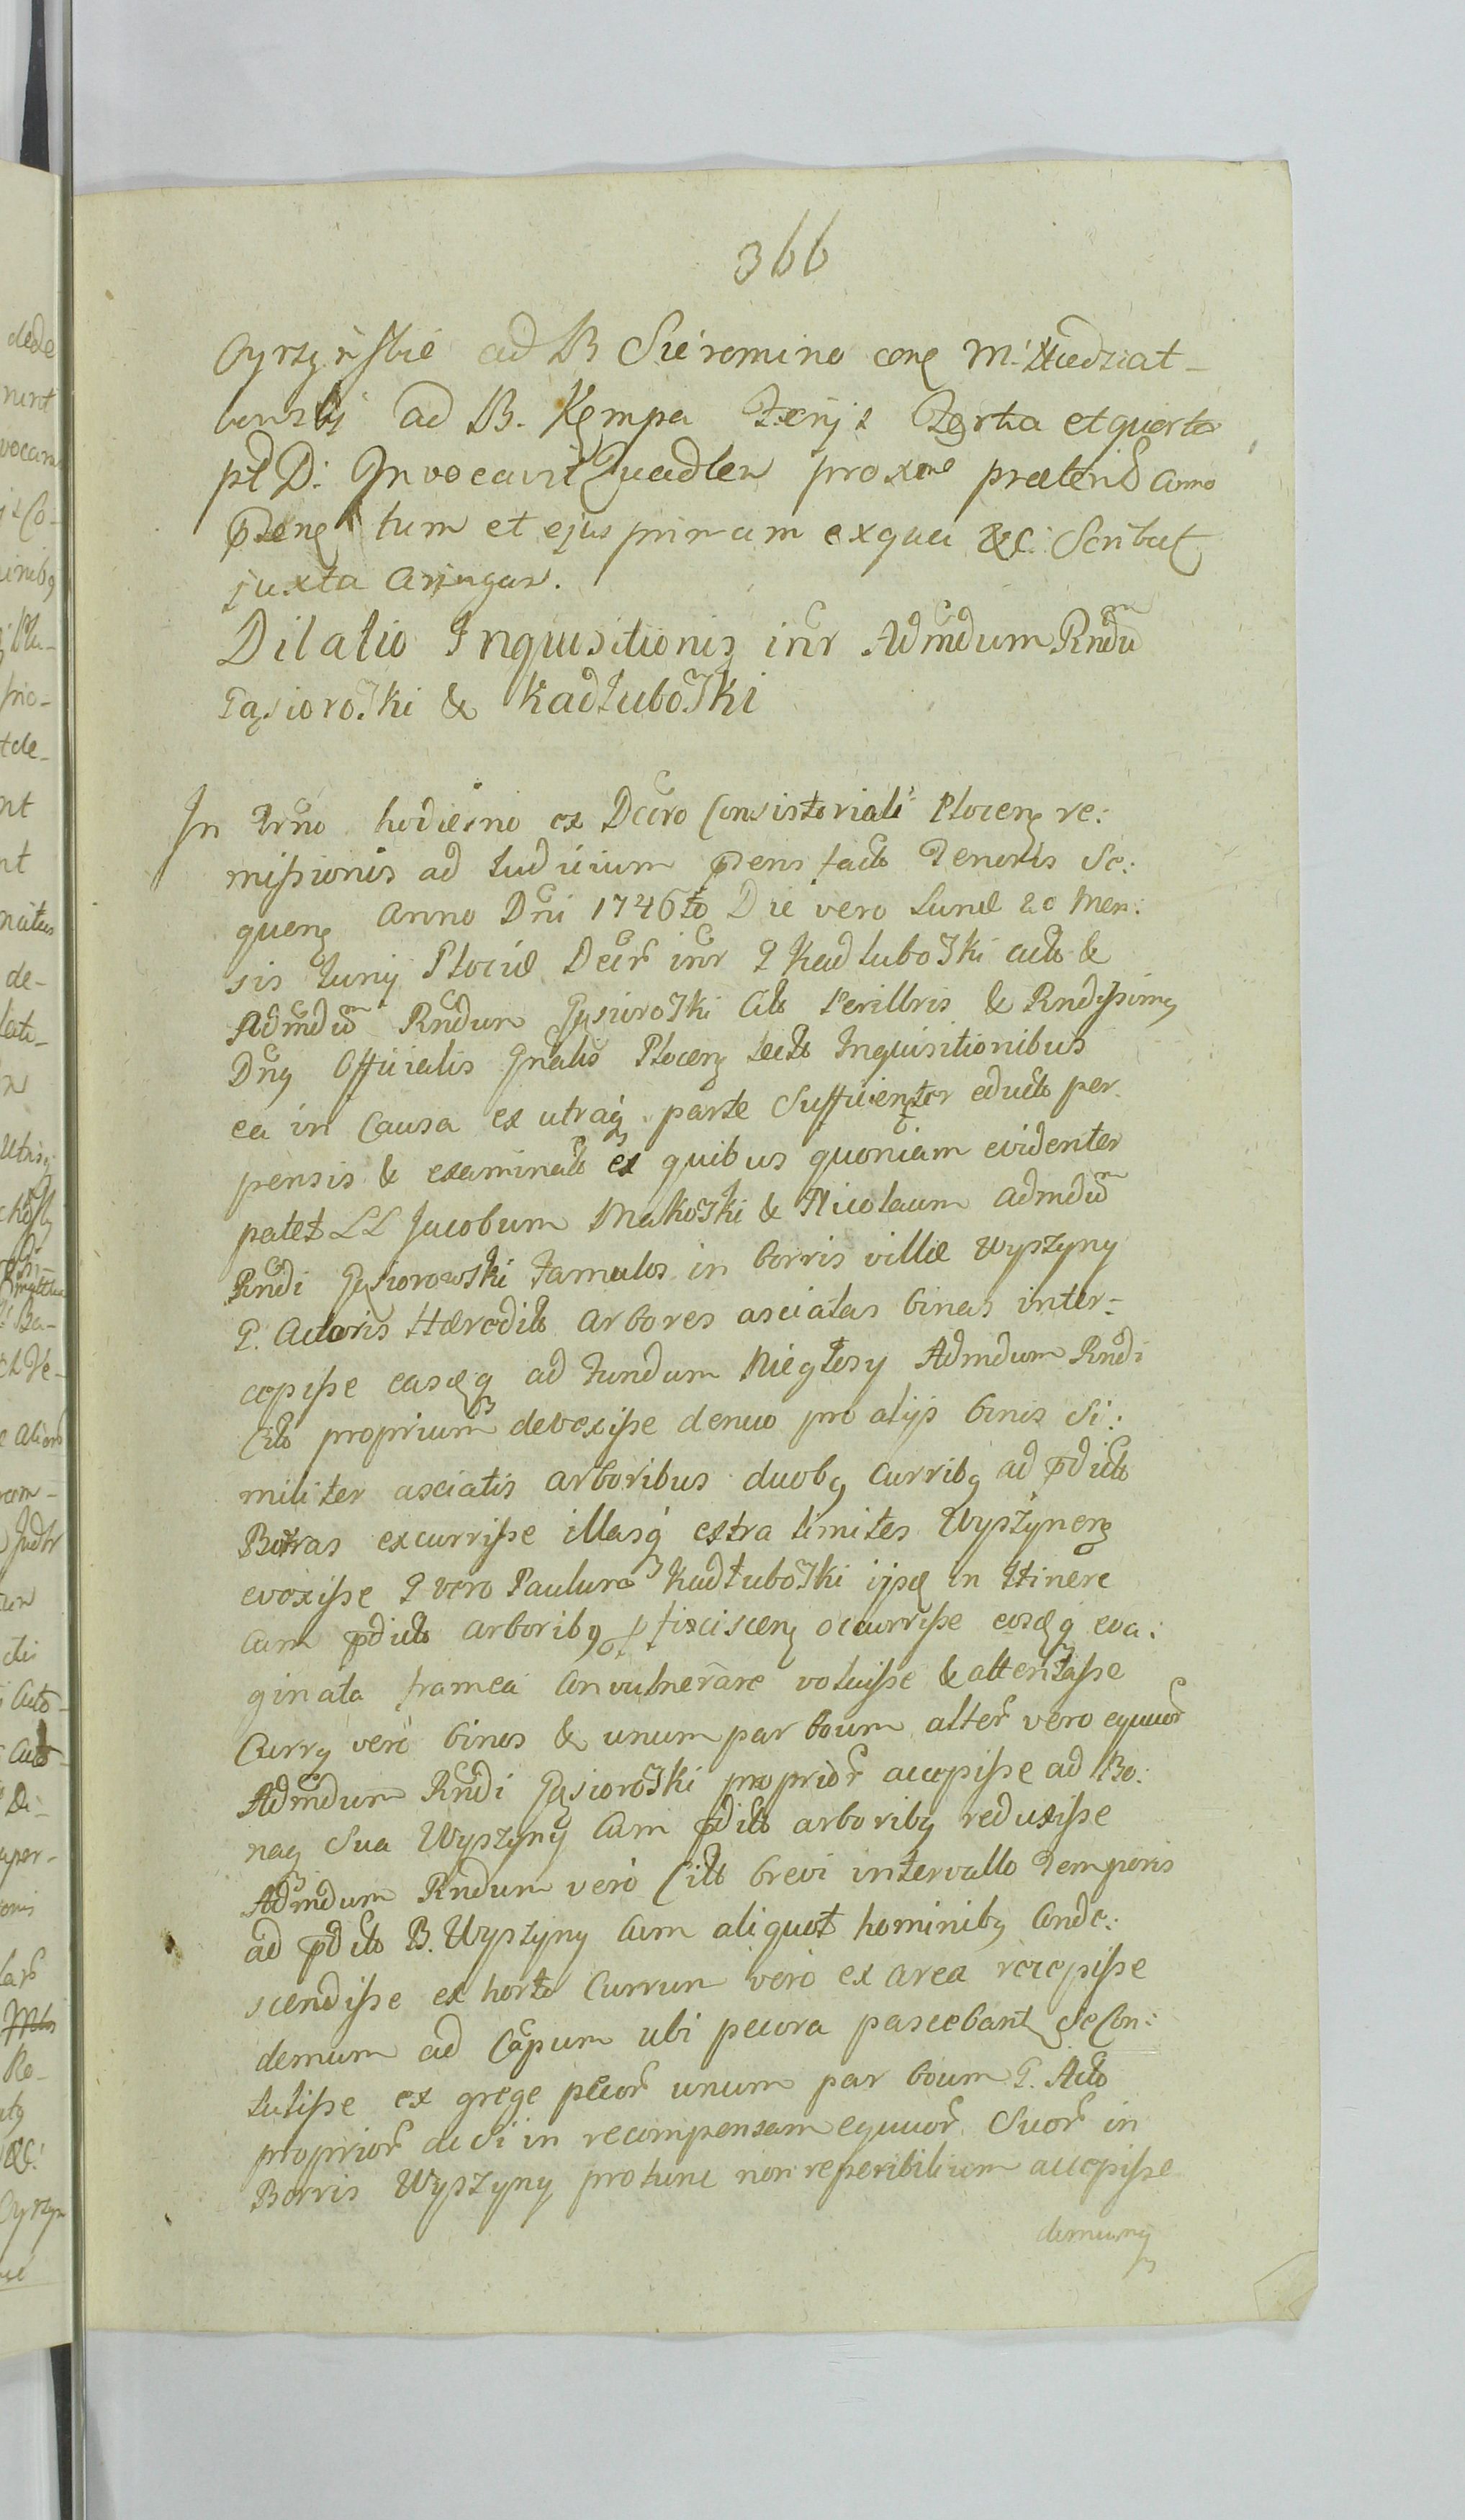 366
ad B Sieromino cone M. Niedziat-
ad B. Kempa Ferijs Tertia et quarta
pt D: Invocavit Quadlen proxme præterid anno
tum et ejus primam ex qua &c: Scribat
juxta
Dilatio Inquisitionis intr Admdum Rndũ
Gąsioroski & Kadłuboski
In Trno hodierno ex Dcro Consistoriali Plocens re:
missionis ad Iudicium pdens facto Tenoris Se:
quens Anno Dni 1746to Die vero Lunæ 20 Men:
sis Iunij Plociæ Decr intr G Kadłuboski acto &
Admdũ Rndum Gąsioroski Cito Perillris & Rndissimus
Dnus Officialis Gnalis Plocens lectis Inquisitionibus
ea in Causa ex utraq parte Sufficienter eductis per
pensis & examinatis ex quibus quoniam evidenter
patet LL Jacobum Makoski & Nicolaum admdũ
Rndi Gąsiorowski Famulos in borris villæ Wyszyny
G. Actoris Hæredito arbores asciatas binas inter-
cepisse easq ad Fundum Niegłosy Admdum Rndi
Cito proprium devexisse denuo pro alijs binis Si:
militer asciatis arboribus duobq Curribq ad pdicto
Borras excurrisse illasq extra limites Wyszynens
evexisse G vero Paulum Kadłuboski in Itinere
Cum pdicto arboribq occurrisse eosq eva:
ginata framea Convulnerare voluisse & attentasse
Currq vero binos & unum par boum alter vero equuor
Admdum Rndi Gąsioroski proprior accepisse ad Bo:
naq Sua Wyszyny Cum pdicto arboribq reduxisse
Admdum Rndum vero Cito brevi intervallo Temporis
ad pdicto B. Wyszyny Cum aliquot hominibq Conde:
scendisse ex horto Currum vero ex area recepisse
demum ad Capum ubi pecora pascebant Se Con:
tulisse ex grege pecor unum par boum G. Acto
proprior ac Si in recompensam equuor Suor in
Borris Wyszyny protunc non reperibilium accepisse
demumq